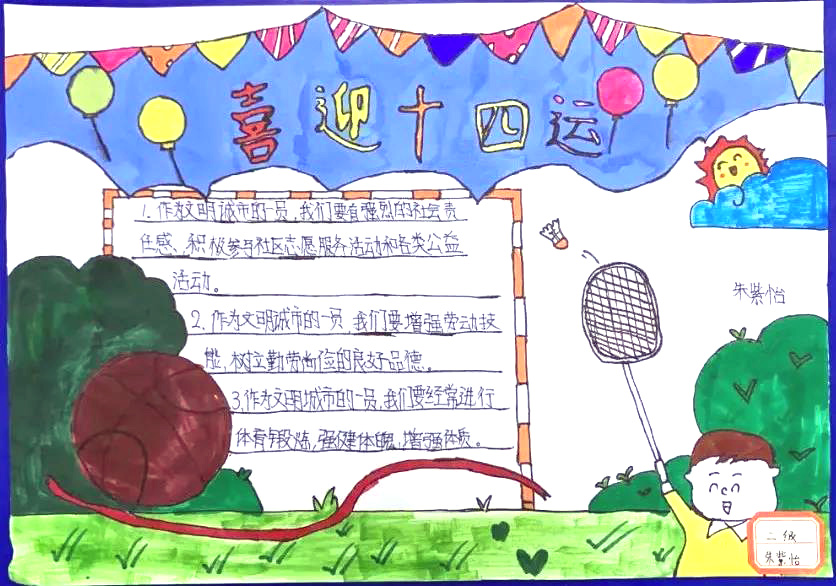 喜迎十四运
1. 作为文明城市的一员，我们要有强烈的社会责
任感、积极参与社区志愿服务活动和各类公益
活动。
2. 作为文明城市的一员，我们要增强劳动技
能，树立勤劳尚俭的良好品德。
3. 作为文明城市的一员，我们要经常进行
体育锻炼，强健体魄，增强体质。
朱紫怡
二级
朱紫怡